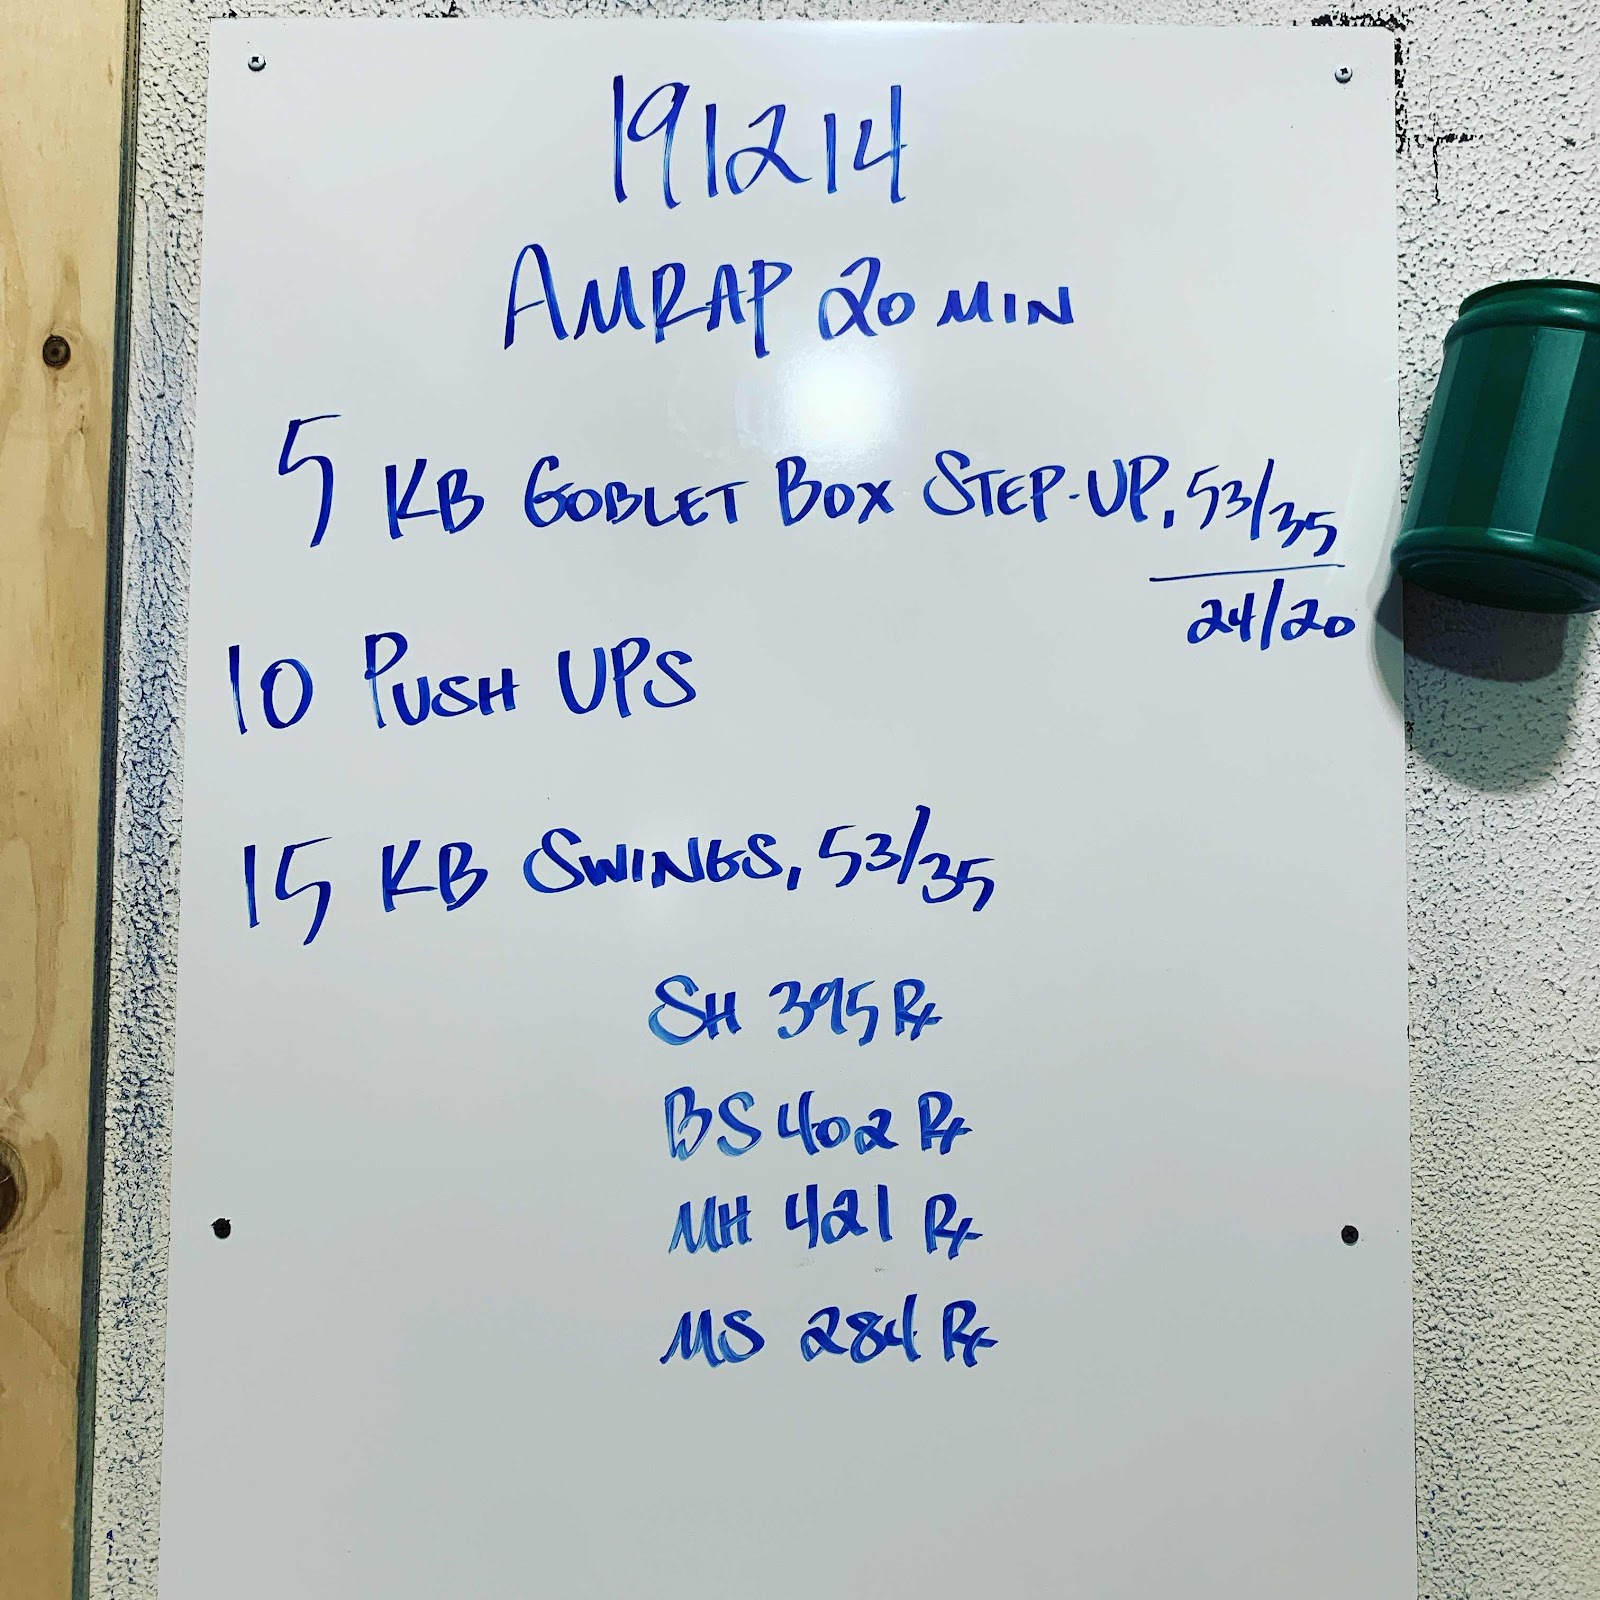 191214
AMRAP 20 MIN
5 KB GOBLET BOX STEP-UP, 53/35
24/20
10 PUSH UPS
15 KB SWINGS, 53/35
SH 395 Rx
BS 402 Rx
MH 421 Rx
MS 284 Rx